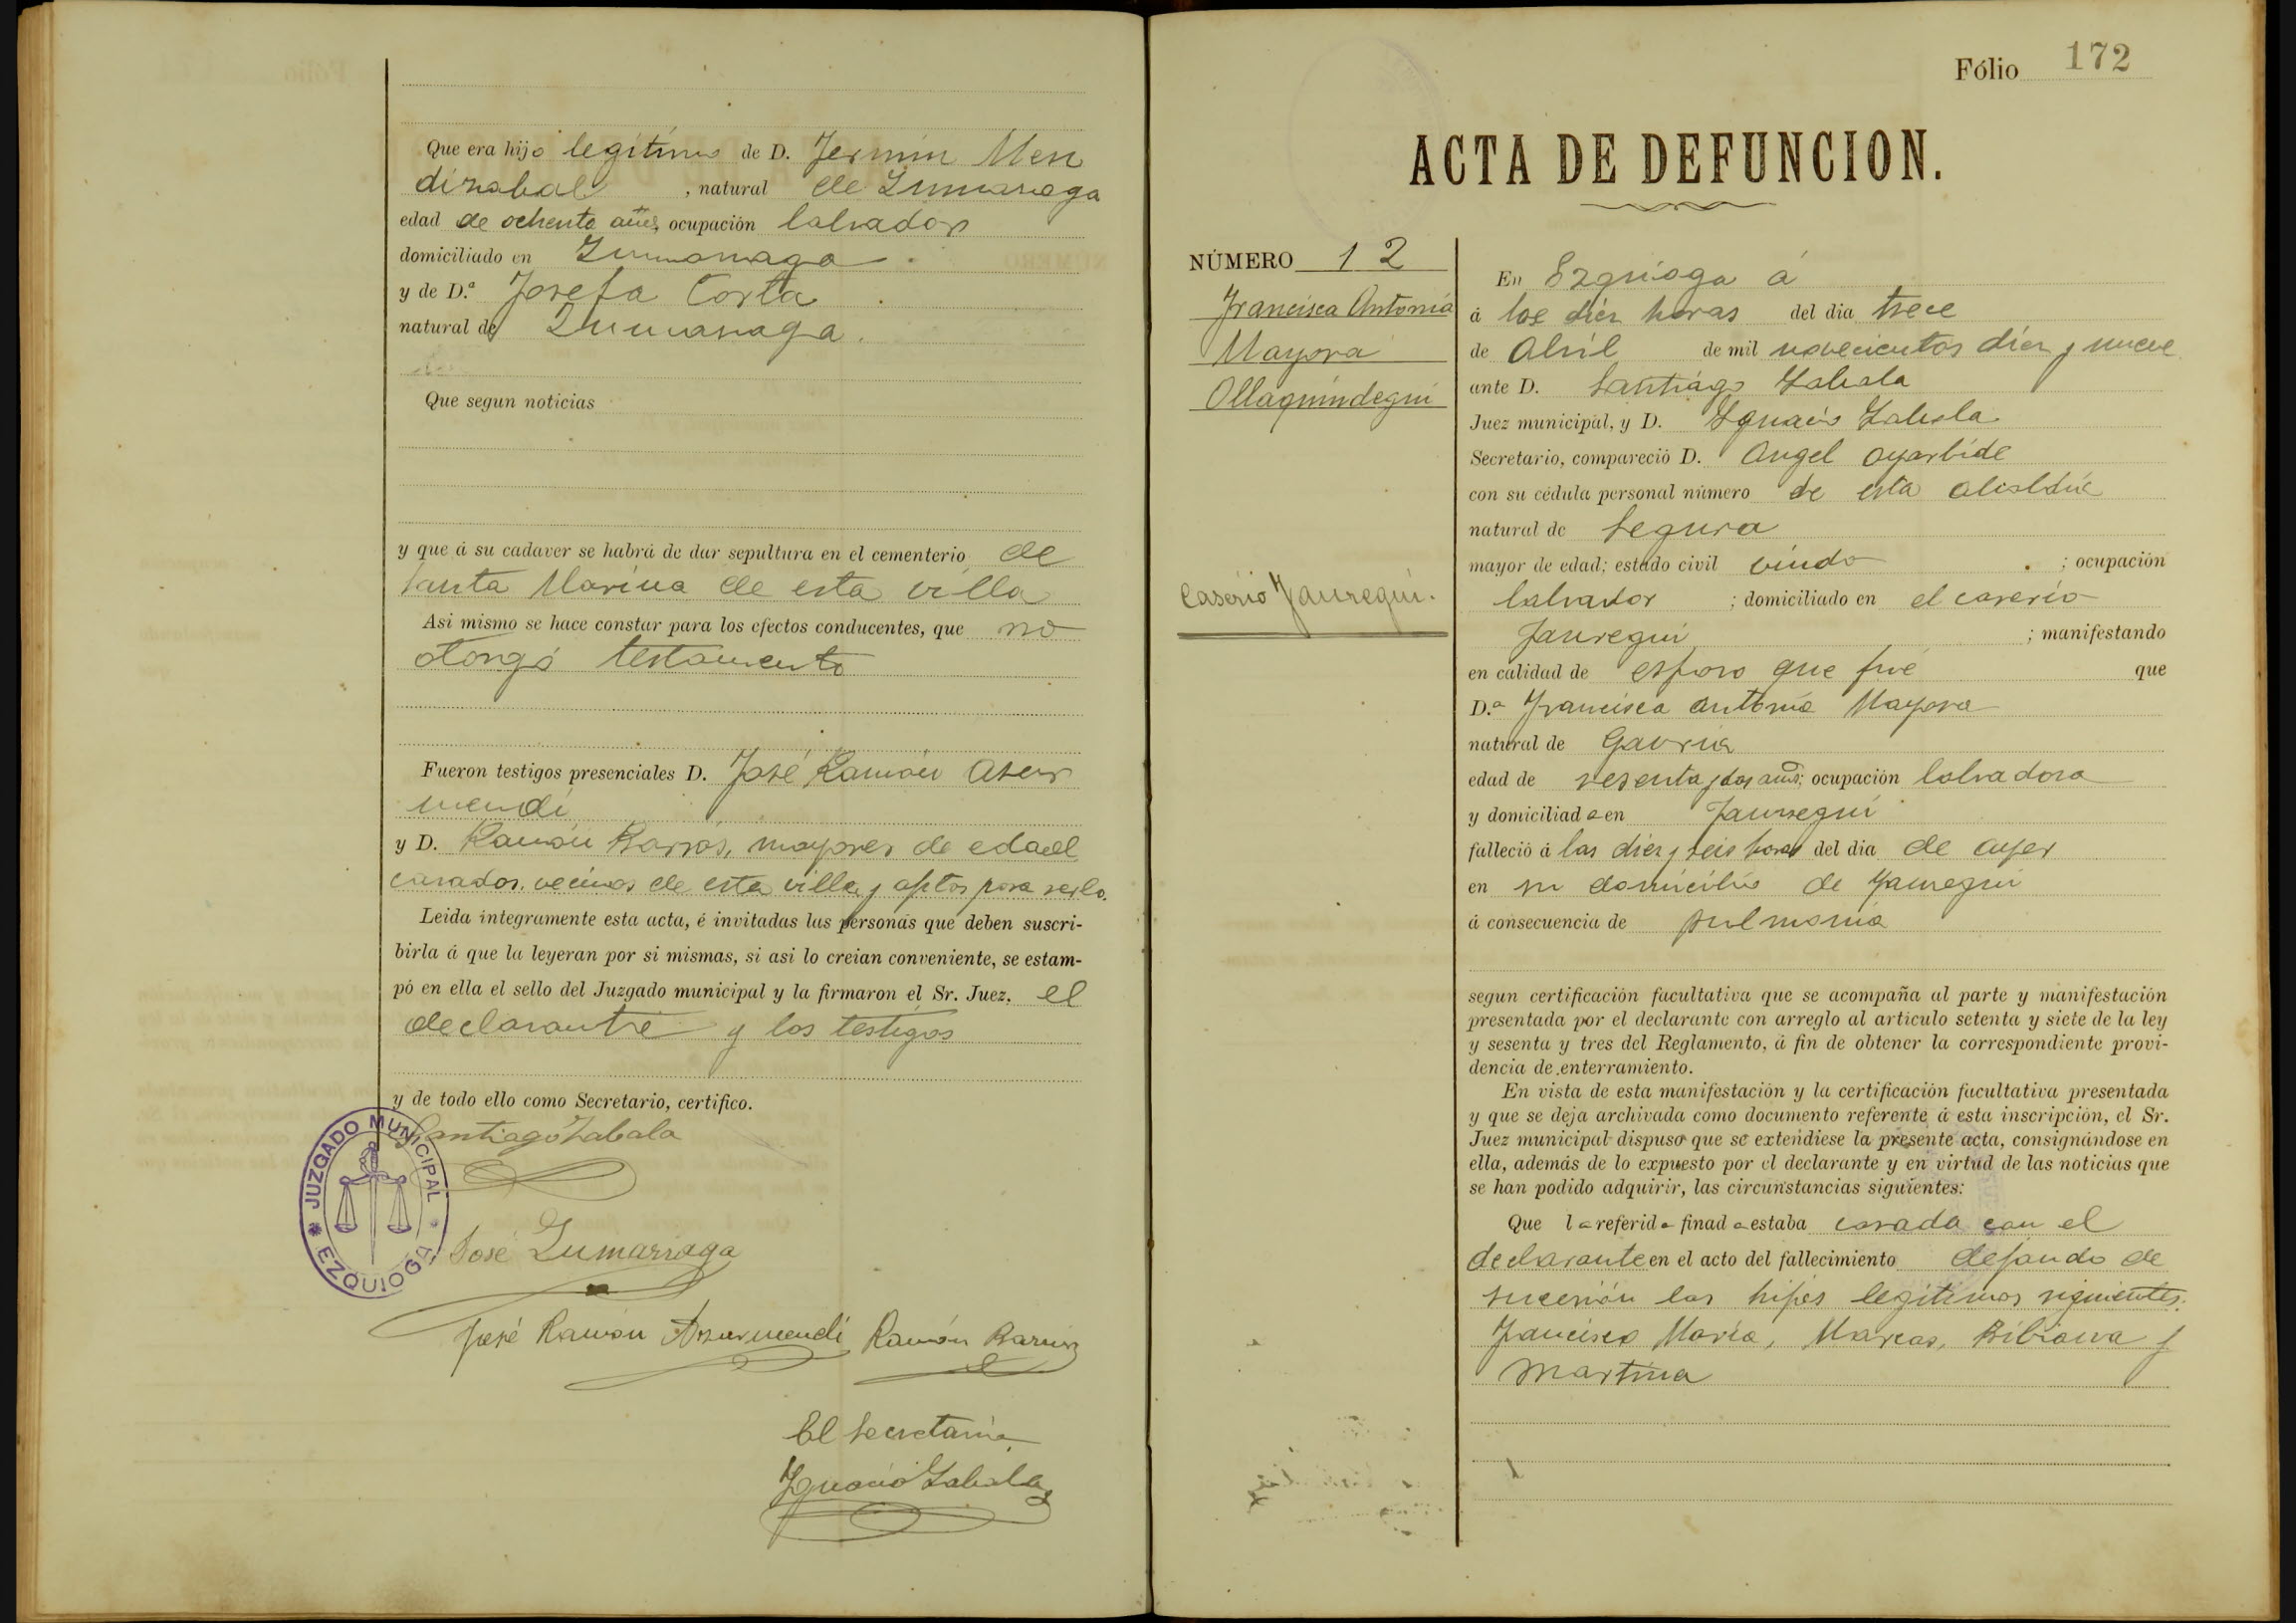 Que era hijo legítimo de D. Fermin Men
dizabal, natural de Zumarraga
edad de ochenta años, ocupación labrador
domiciliado en Zumarraga
y de D.ª Josefa Corta
natural de Zumarraga.
Que segun noticias
y que á su cadaver se habrá de dar sepultura en el cementerio de
Santa Marina de esta villa
Asi mismo se hace constar para los efectos conducentes, que no
otorgó testamento
Fueron testigos presenciales D. José Ramón Azur
mendi
y D. Ramón Barrios, mayores de edad
casados, vecinos de esta villa y aptos para serlo.
Leida integramente esta acta, é invitadas las personas que deben suscri-
birla á que la leyeran por si mismas, si asi lo creian conveniente, se estam-
pó en ella el sello del Juzgado municipal y la firmaron el Sr. Juez, el
declarante y los testigos
y de todo ello como Secretario, certifico.
Santiago Zabala
JUZGADO MUNICIPAL * EZQUIOGA *
José Zumarraga
José Ramón Azurmendi Ramón Barrios
El Secretario
Ygnacio Zabala
Fólio 172
ACTA DE DEFUNCION.
NÚMERO 12
Francisca Antonia
Mayora
Ollaquindegui
Caserio Jauregui.
En Ezquioga á
á las diez horas del dia trece
de Abril de mil novecientos diez y nueve
ante D. Santiago Zabala
Juez municipal, y D. Ygnacio Zabala
Secretario, compareció D. Angel Oyarbide
con su cédula personal número de esta alcaldía
natural de Segura
mayor de edad; estado civil viudo ; ocupación
labrador ; domiciliado en el caserio
Jauregui ; manifestando
en calidad de esposo que fué que
D.ª Francisca Antonia Mayora
natural de Gaviria
edad de sesenta y dos años; ocupación labradora
y domiciliada en Jauregui
falleció á las diez y seis horas del dia de ayer
en su domicilio de Jauregui
á consecuencia de pulmonia
segun certificación facultativa que se acompaña al parte y manifestación
presentada por el declarante con arreglo al artículo setenta y siete de la ley
y sesenta y tres del Reglamento, á fin de obtener la correspondiente provi-
dencia de enterramiento.
En vista de esta manifestación y la certificación facultativa presentada
y que se deja archivada como documento referente á esta inscripción, el Sr.
Juez municipal dispuso que se extendiese la presente acta, consignándose en
ella, además de lo expuesto por el declarante y en virtud de las noticias que
se han podido adquirir, las circunstancias siguientes:
Que la referida finada estaba casada con el
declarante en el acto del fallecimiento dejando de
sucesión los hijos legítimos siguientes:
Francisco María, Marcos, Bibiana y
Martina